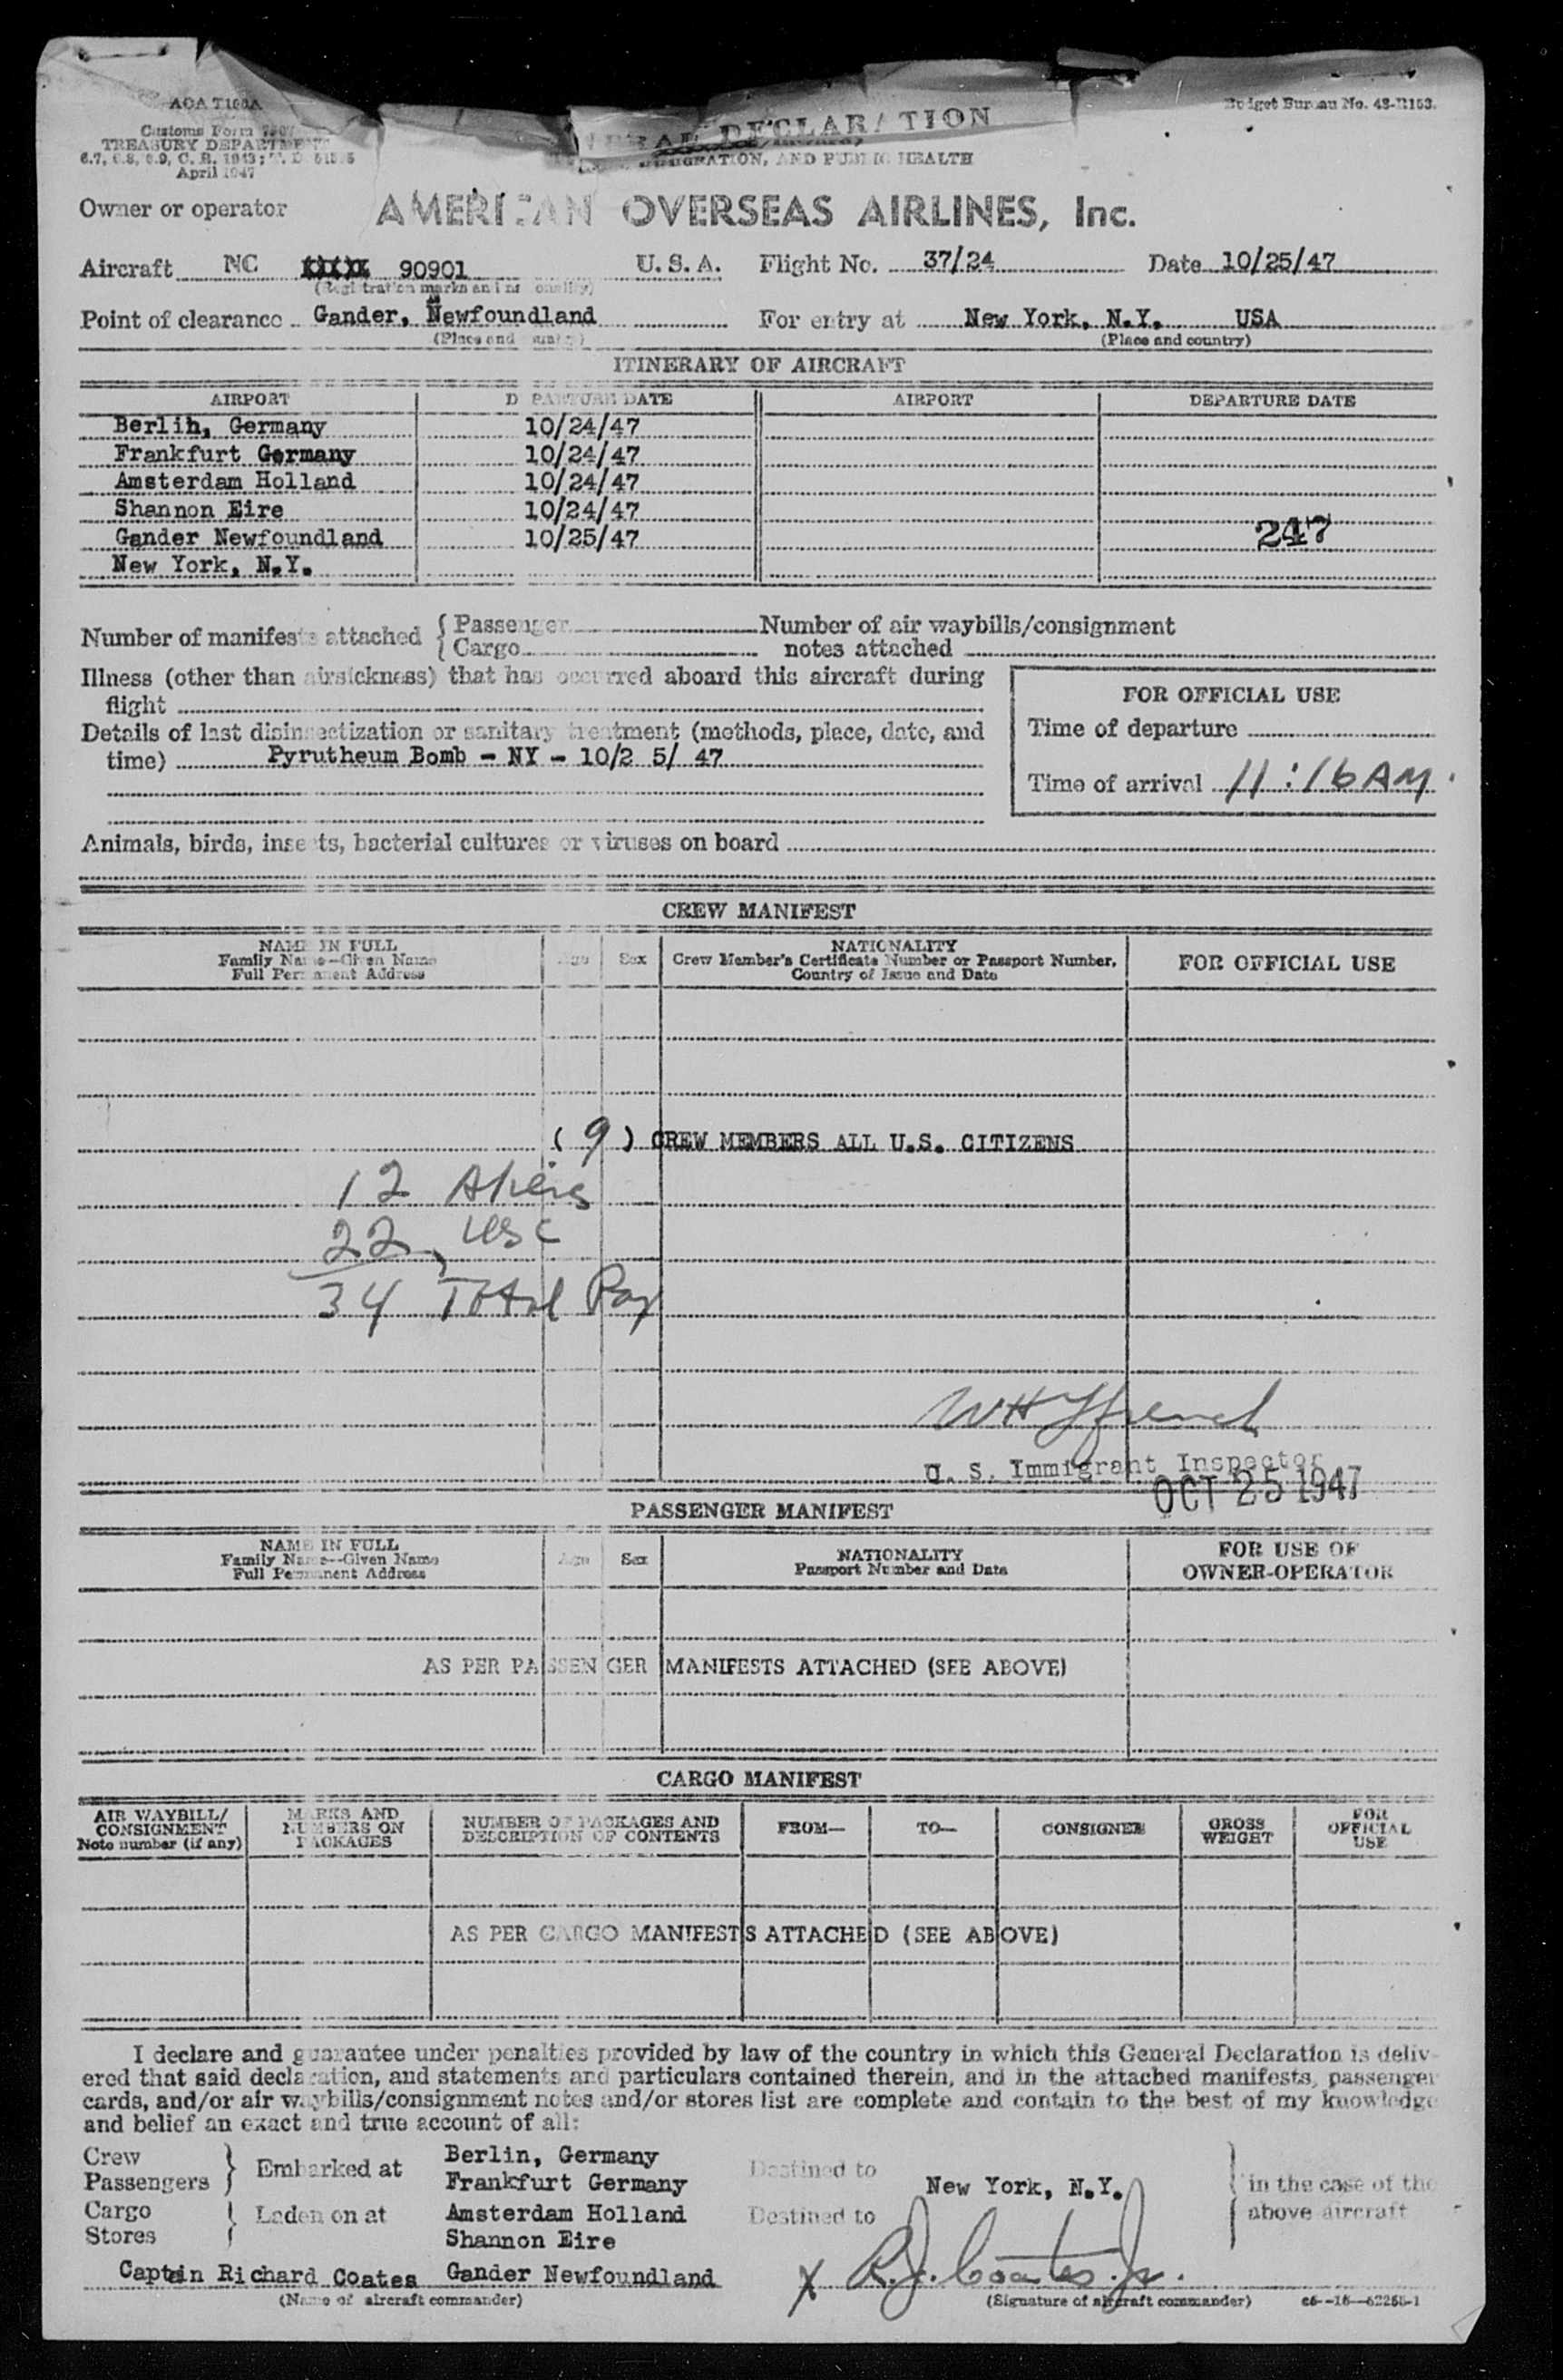 AOA T100A
Budget Bureau No. 48-R153.
Customs Form
TREASURY DEPARTMENT
April 1947
DECLARATION
IMMIGRATION, AND PUBLIC HEALTH
Owner or operator AMERICAN OVERSEAS AIRLINES, Inc.
Aircraft NC 90901 U. S. A. Flight No. 37/24 Date 10/25/47
(Registration marks and nationality)
Point of clearance Gander, Newfoundland For entry at New York, N.Y. USA
(Place and country) (Place and country)
ITINERARY OF AIRCRAFT
AIRPORT DEPARTURE DATE AIRPORT DEPARTURE DATE
Berlih, Germany 10/24/47
Frankfurt Germany 10/24/47
Amsterdam Holland 10/24/47
Shannon Eire 10/24/47
Gander Newfoundland 10/25/47 247
New York, N.Y.
Number of manifests attached { Passenger Number of air waybills/consignment
{ Cargo notes attached
Illness (other than airsickness) that has occurred aboard this aircraft during
flight
FOR OFFICIAL USE
Details of last disinsectization or sanitary treatment (methods, place, date, and
Time of departure
time) Pyrutheum Bomb - NY - 10/2 5/ 47
Time of arrival 11:16 AM.
Animals, birds, insects, bacterial cultures or viruses on board
CREW MANIFEST
NAME IN FULL
Family Name—Given Name
Full Permanent Address
Age Sex
NATIONALITY
Crew Member's Certificate Number or Passport Number,
Country of Issue and Date
FOR OFFICIAL USE
( 9 ) CREW MEMBERS ALL U.S. CITIZENS
12 Aliens
22 USC
34 Total Pax
U. S. Immigrant Inspector
OCT 25 1947
PASSENGER MANIFEST
NAME IN FULL
Family Name—Given Name
Full Permanent Address
Age Sex
NATIONALITY
Passport Number and Date
FOR USE OF
OWNER-OPERATOR
AS PER PASSENGER MANIFESTS ATTACHED (SEE ABOVE)
CARGO MANIFEST
AIR WAYBILL/
CONSIGNMENT
Note number (if any)
MARKS AND
NUMBERS ON
PACKAGES
NUMBER OF PACKAGES AND
DESCRIPTION OF CONTENTS
FROM—
TO—
CONSIGNEE
GROSS
WEIGHT
FOR
OFFICIAL
USE
AS PER CARGO MANIFESTS ATTACHED (SEE ABOVE)
I declare and guarantee under penalties provided by law of the country in which this General Declaration is deliv-
ered that said declaration, and statements and particulars contained therein, and in the attached manifests, passenger
cards, and/or air waybills/consignment notes and/or stores list are complete and contain to the best of my knowledge
and belief an exact and true account of all:
Crew
Passengers } Embarked at
Cargo
Stores } Laden on at
Berlin, Germany
Frankfurt Germany
Amsterdam Holland
Shannon Eire
Gander Newfoundland
Destined to
New York, N.Y.
Destined to
in the case of the
above aircraft
Captain Richard Coates
X R.J. Coates Jr.
(Name of aircraft commander) (Signature of aircraft commander)